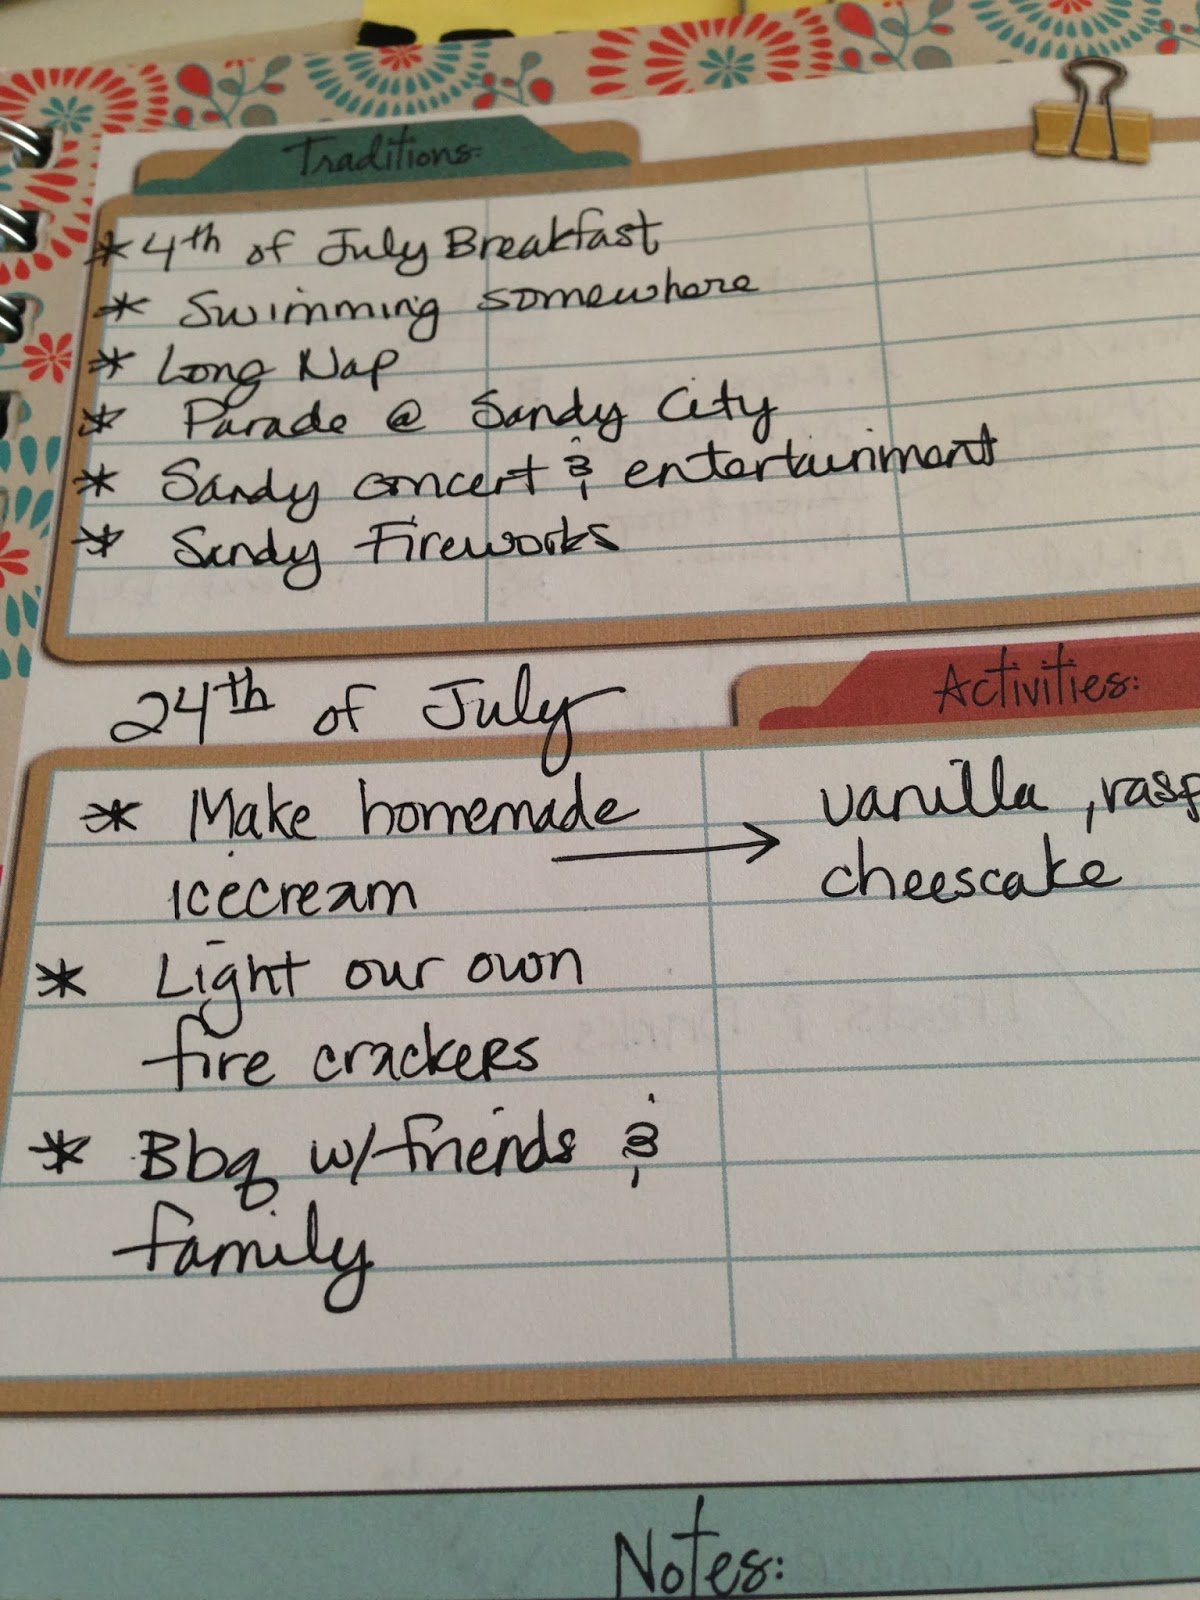 Traditions:
* 4th of July Breakfast
* Swimming somewhere
* Long Nap
* Parade @ Sandy City
* Sandy concert & entertainment
* Sandy Fireworks
24th of July
Activities:
* Make homemade
icecream → vanilla, rasp
cheescake
* Light our own
fire crackers
* Bbq w/friends &
family
Notes: